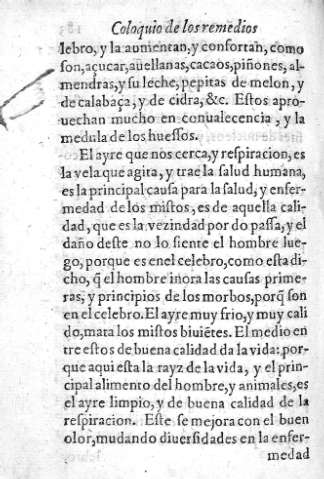 Coloquio de los remedios
lebro, y la aumentan, y confortan, como
son, açucar, auellanas, cacaos, piñones, al-
mendras, y su leche, pepitas de melon, y
de calabaça, y de cidra, &c. Estos apro-
uechan mucho en conualecencia, y la
medula de los huessos.
El ayre que nos cerca, y respiracion, es
la vela que agita, y trae la salud humana,
es la principal causa para la salud, y enfer-
medad de los mistos, es de aquella cali-
dad, que es la vezindad por do passa, y el
daño deste no lo siente el hombre lue-
go, porque es en el celebro, como esta di-
cho, q̃ el hombre inora las causas prime-
ras, y principios de los morbos, porq̃ son
en el celebro. El ayre muy frio, y muy cali
do, mata los mistos biuiẽtes. El medio en
tre estos de buena calidad da la vida: por-
que aqui esta la rayz de la vida, y el prin-
cipal alimento del hombre, y animales, es
el ayre limpio, y de buena calidad de la
respiracion. Este se mejora con el buen
olor, mudando diuersidades en la enfer-
medad